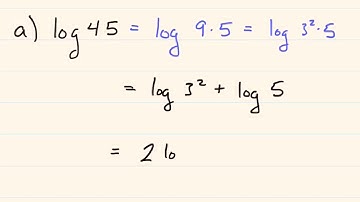 a) log 45 = log 9·5 = log 3²·5
= log 3² + log 5
= 2 lo